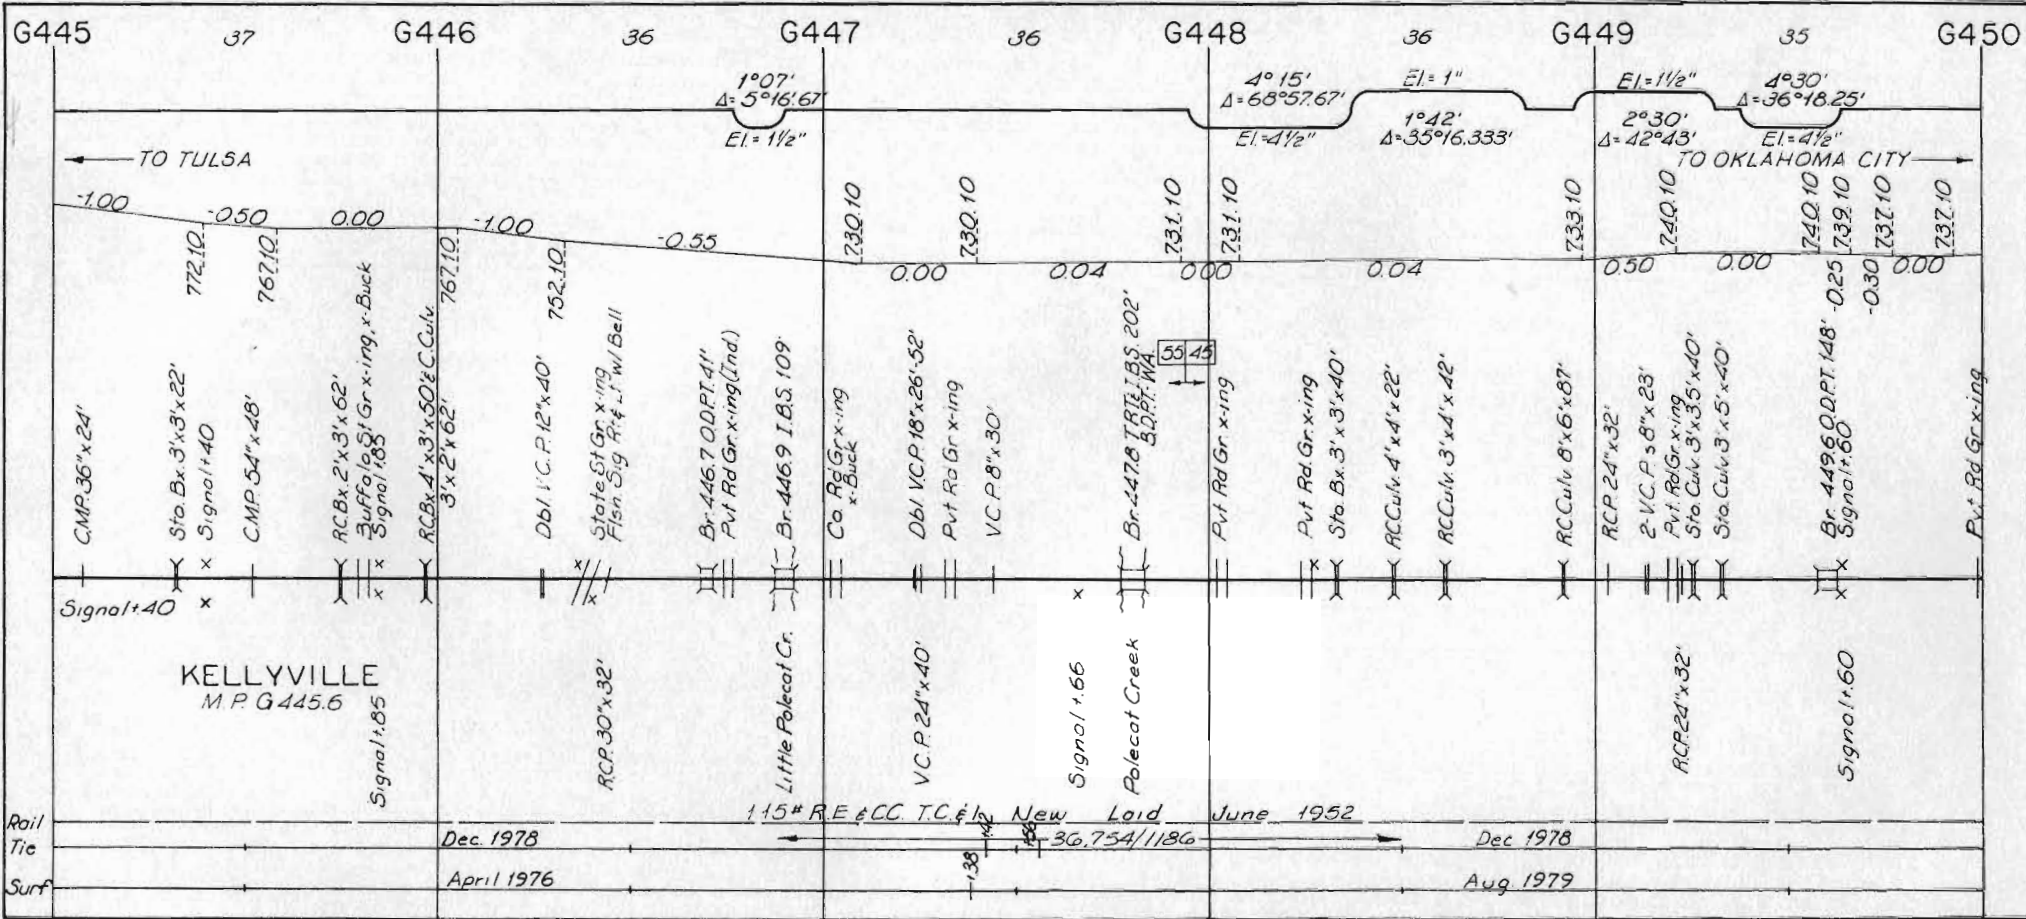 G445 37 G446 36 G447 36 G448 36 G449 35 G450
1°07'
Δ=5°16.67'
El.=1½"
4°15'
Δ=68°57.67'
El.=4½"
El.=1"
1°42'
Δ=35°16.333'
El.=1½"
2°30'
Δ=42°43'
4°30'
Δ=36°18.25'
El.=4½"
TO TULSA
TO OKLAHOMA CITY
-1.00 -0.50 0.00 -1.00 -0.55 0.00 0.04 0.00 0.04 0.50 0.00 -0.25 -0.30 0.00
772.10 767.10 767.10 752.10 730.10 730.10 731.10 731.10 733.10 740.10 740.10 739.10 737.10 737.10
C.M.P. 36"x24'
Sto. Bx. 3'x3'x22'
Signal+.40
C.M.P. 54"x48'
R.C.Bx. 2'x3'x62'
Buffalo St Gr x-ing, x-Buck
Signal+.85
R.C.Bx 4'x3'x50' & C.Culv.
3'x2'x62'
Dbl. V.C.P. 12"x40'
State St Gr. x-ing
Flsh. Sig Rt & Lt W/ Bell
Br. 446.7 O.D.P.T. 41'
Pvt Rd Gr. x-ing (Ind.)
Br. 446.9 I.B.S. 109'
Co. Rd Gr x-ing
x-Buck
Dbl. V.C.P. 18"x26'-52'
Pvt Rd Gr x-ing
V.C.P. 8"x30'
Br. 447.8 T.R.T. I.B.S. 202'
B.D.P.T. W.A.
55 45
Pvt Rd Gr. x-ing
Pvt Rd. Gr. x-ing
Sto. Bx. 3'x3'x40'
R.C.Culv. 4'x4'x22'
R.C.Culv. 3'x4'x42'
R.C.Culv. 8'x6'x87'
R.C.P. 24"x32'
2-V.C.P.'s 8"x23'
Pvt. Rd Gr. x-ing
Sto Culv. 3'x3.5'x40'
Sto. Culv. 3'x5'x40'
Br. 449.6 O.D.P.T. 148'
Signal+.60
Pvt Rd Gr x-ing
Signal+.40
KELLYVILLE
M.P. G445.6
Signal+.85
R.C.P. 30"x32'
Little Polecat Cr.
V.C.P. 24"x40'
Signal+.66
Polecat Creek
R.C.P. 24"x32'
Signal+.60
Rail 115# R.E & CC. T.C. & New Laid June 1952
Tie Dec. 1978 .42 .56 36,754/1186 Dec 1978
Surf April 1976 .38 Aug. 1979